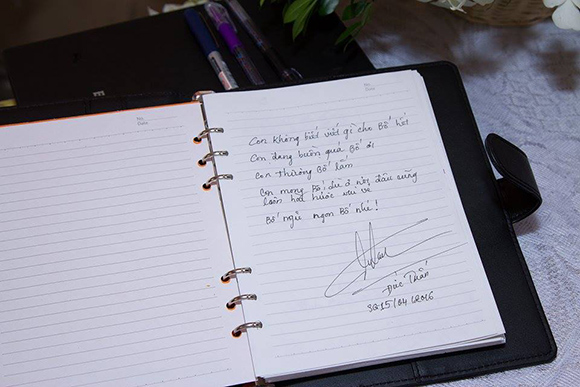 Con không biết viết gì cho Bố hết
Con đang buồn quá Bố ơi
Con thương Bố lắm
Con mong Bố, dù ở nơi đâu cũng
luôn hài hước vui vẻ
Bố ngủ ngon Bố nhé!
Đức Thắn
SG 15/04/2016
No.
Date.